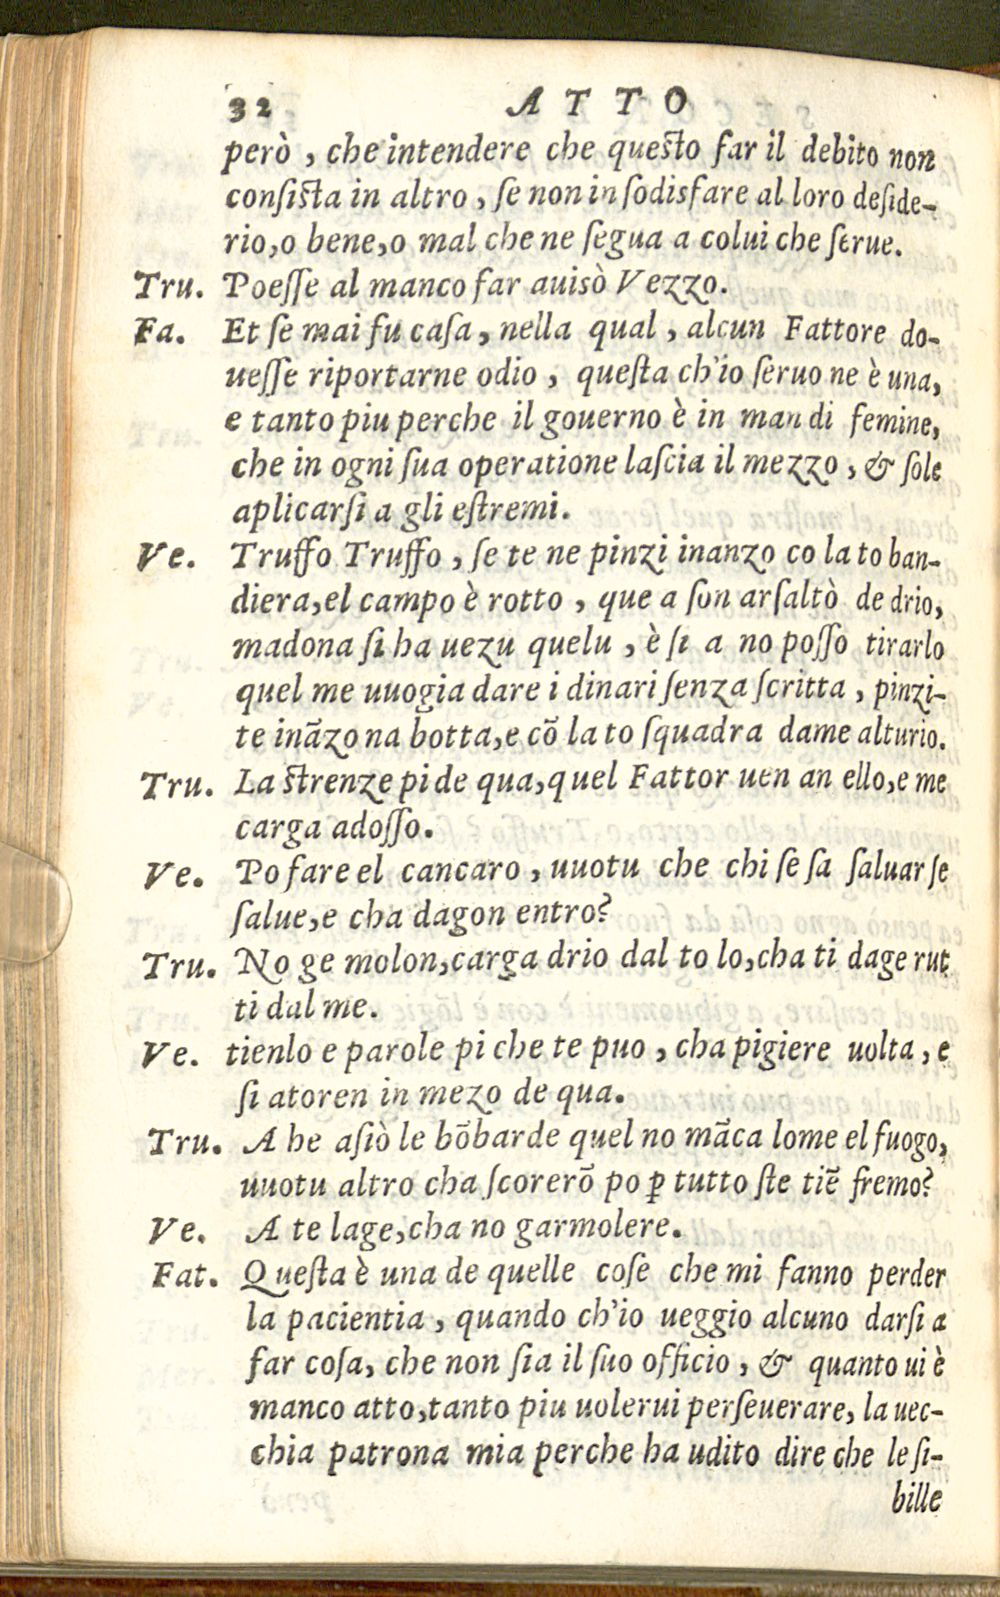 32 ATTO
però, che intendere che questo far il debito non
consista in altro, se non in sodisfare al loro deside-
rio, o bene, o mal che ne segua a colui che serue.
Tru. Poesse al manco far auisò Vezzo.
Fa. Et se mai fu casa, nella qual, alcun Fattore do-
uesse riportarne odio, questa ch'io seruo ne è una,
e tanto piu perche il gouerno è in man di femine,
che in ogni sua operatione lascia il mezzo, & sole
aplicarsi a gli estremi.
Ve. Truffo Truffo, se te ne pinzi inanzo co la to ban-
diera, el campo è rotto, que a son arsaltò de drio,
madona si ha uezu quelu, è si a no posso tirarlo
quel me uuogia dare i dinari senza scritta, pinzi-
te inãzo na botta, e cõ la to squadra dame alturio.
Tru. La strenze pi de qua, quel Fattor uen an ello, e me
carga adosso.
Ve. Po fare el cancaro, uuotu che chi se sa saluar se
salue, e cha dagon entro?
Tru. No ge molon, carga drio dal to lo, cha ti dage rut
ti dal me.
Ve. tienlo e parole pi che te puo, cha pigiere uolta, e
si atoren in mezo de qua.
Tru. A he asiò le bõbarde quel no mãca lome el fuogo,
uuotu altro cha scorerõ po ꝑ tutto ste tiẽ fremo?
Ve. A te lage, cha no garmolere.
Fat. Questa è una de quelle cose che mi fanno perder
la pacientia, quando ch'io ueggio alcuno darsi a
far cosa, che non sia il suo officio, & quanto ui è
manco atto, tanto piu uolerui perseuerare, la uec-
chia patrona mia perche ha udito dire che le si-
bille